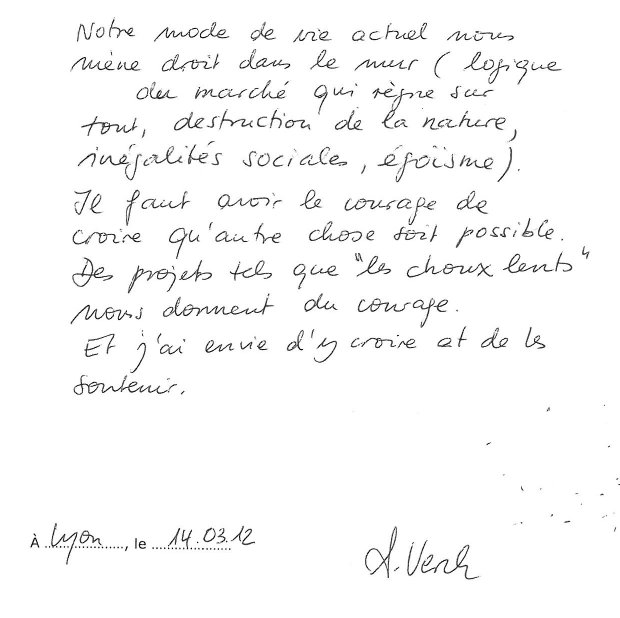 Notre mode de vie actuel nous
mène droit dans le mur ( logique
du marché qui règne sur
tout, destruction de la nature,
inégalités sociales, égoïsme).
Il faut avoir le courage de
croire qu'autre chose soit possible.
Des projets tels que "les choux lents"
nous donnent du courage.
Et j'ai envie d'y croire et de les
soutenir.
À Lyon, le 14.03.12